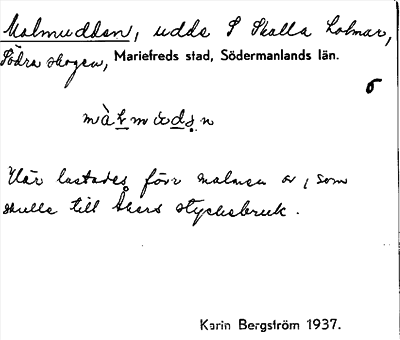 Malmudden, udde S Skalla holmar,
Södra skogen, Mariefreds stad, Södermanlands län.
6
Här lastades förr malmen av, som
skulle till Åkers styckebruk.
Karin Bergström 1937.